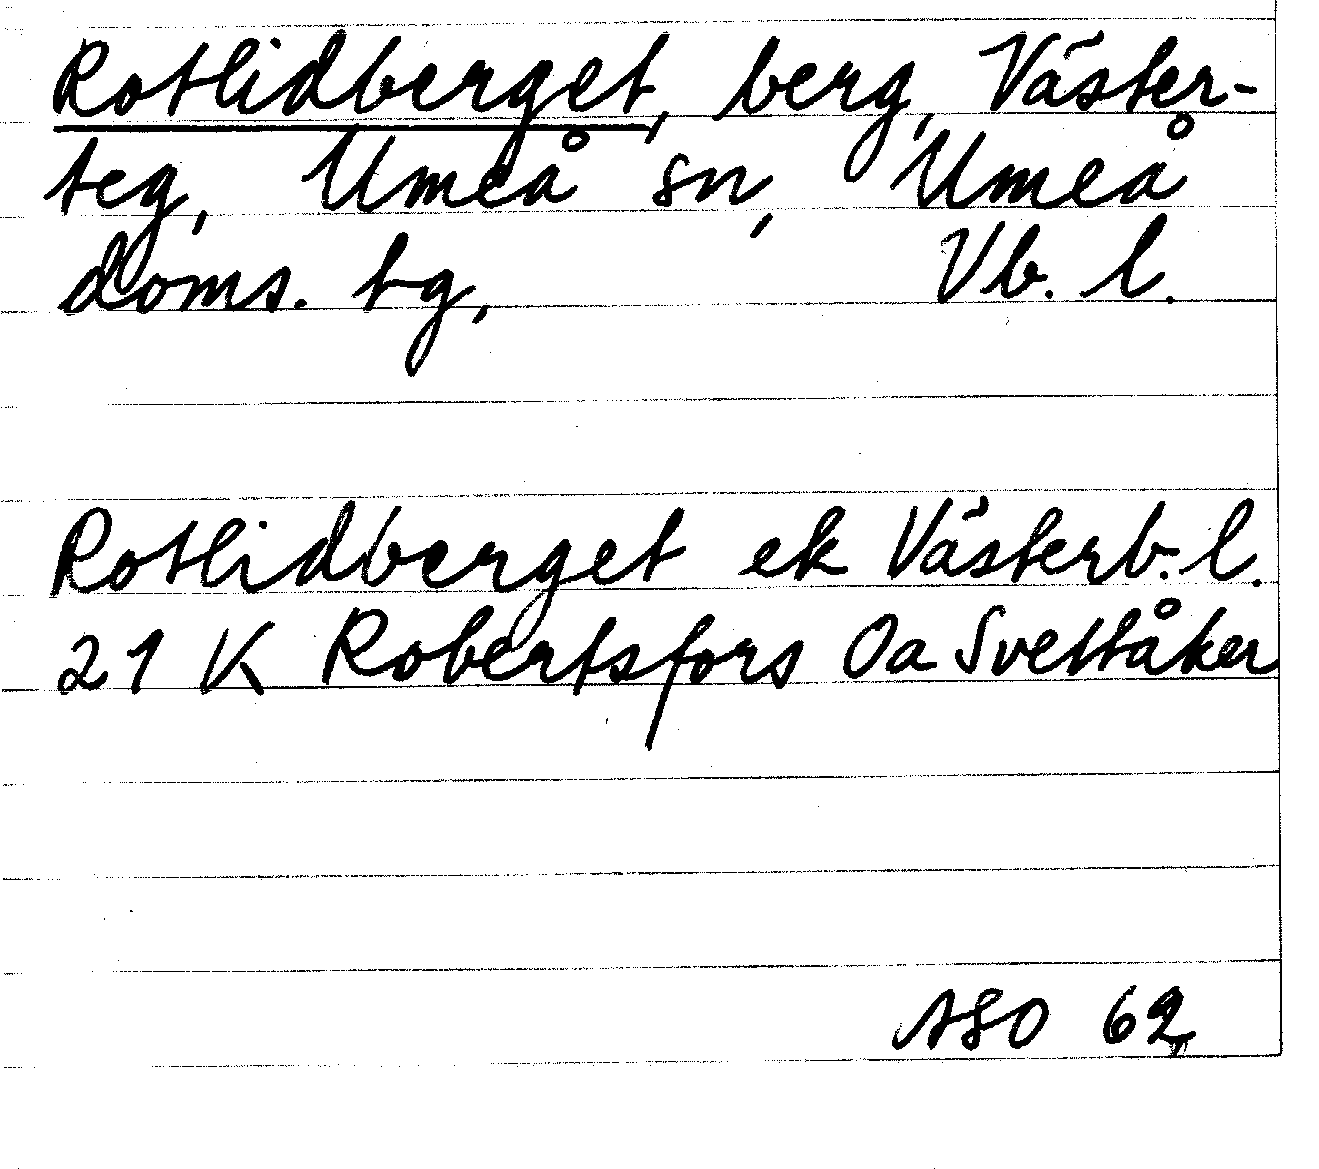 Rotlidberget, berg, Väster-
teg, Umeå sn, Umeå
doms. tg, Vb. l.
Rotlidberget ek Västerb. l.
21 K Robertsfors Oa Svettåker
ASO 62